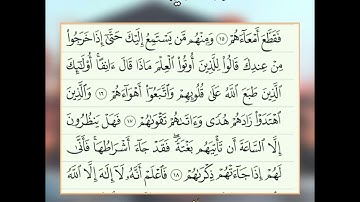 فَقَطَّعَ أَمْعَآءَهُمْ ١٥ وَمِنْهُم مَّن يَسْتَمِعُ إِلَيْكَ حَتَّىٰٓ إِذَا خَرَجُوا۟
مِنْ عِندِكَ قَالُوا۟ لِلَّذِينَ أُوتُوا۟ ٱلْعِلْمَ مَاذَا قَالَ ءَانِفًا ۚ أُو۟لَـٰٓئِكَ
ٱلَّذِينَ طَبَعَ ٱللَّهُ عَلَىٰ قُلُوبِهِمْ وَٱتَّبَعُوٓا۟ أَهْوَآءَهُمْ ١٦ وَٱلَّذِينَ
ٱهْتَدَوْا۟ زَادَهُمْ هُدًى وَءَاتَىٰهُمْ تَقْوَىٰهُمْ ١٧ فَهَلْ يَنظُرُونَ
إِلَّا ٱلسَّاعَةَ أَن تَأْتِيَهُم بَغْتَةً ۖ فَقَدْ جَآءَ أَشْرَاطُهَا ۚ فَأَنَّىٰ
لَهُمْ إِذَا جَآءَتْهُمْ ذِكْرَىٰهُمْ ١٨ فَٱعْلَمْ أَنَّهُۥ لَآ إِلَـٰهَ إِلَّا ٱللَّهُ